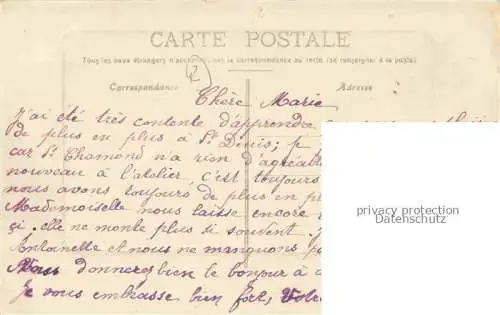 CARTE POSTALE
Tous les pays étrangers n'acceptent pas la correspondance au recto (se renseigner à la poste)
2
Correspondance
Adresse
Chère Marie
J'ai été très contente d'apprendre
de plus en plus à St Denis; p
car St Chamond n'a rien d'agréable
nouveau à l'atelier, c'est toujours
nous avons toujours de plus en pr
Mademoiselle nous laisse encore
çi. elle ne monte plus si souvent.
Antoinette et nous ne manquons pa
Vous donnerez bien le bonjour à
Je vous embrasse bien fort, Votre
privacy protection
Datenschutz